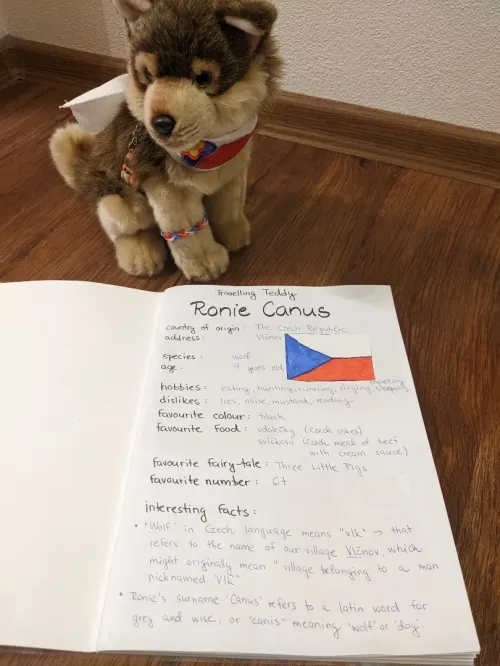 Travelling Teddy
Ronie Canus
country of origin: The Czech Republic
address: Vlčnov
species: wolf
age: 9 years old
hobbies: eating, hunting, running, singing, travelling, sleeping
dislikes: lies, noise, mustard, reading
favourite colour: black
favourite food: vdolečky (Czech cakes)
svíčková (Czech meal of beef
with cream sauce)
favourite fairy-tale: Three Little Pigs
favourite number: 67
interesting facts:
• "Wolf" in Czech language means "vlk" → that
refers to the name of our village Vlčnov, which
might originally mean "village belonging to a man
nicknamed 'Vlk'"
• Ronie's surname 'Canus' refers to a latin word for
grey and wise, or 'canis' meaning 'wolf' or 'dog'.